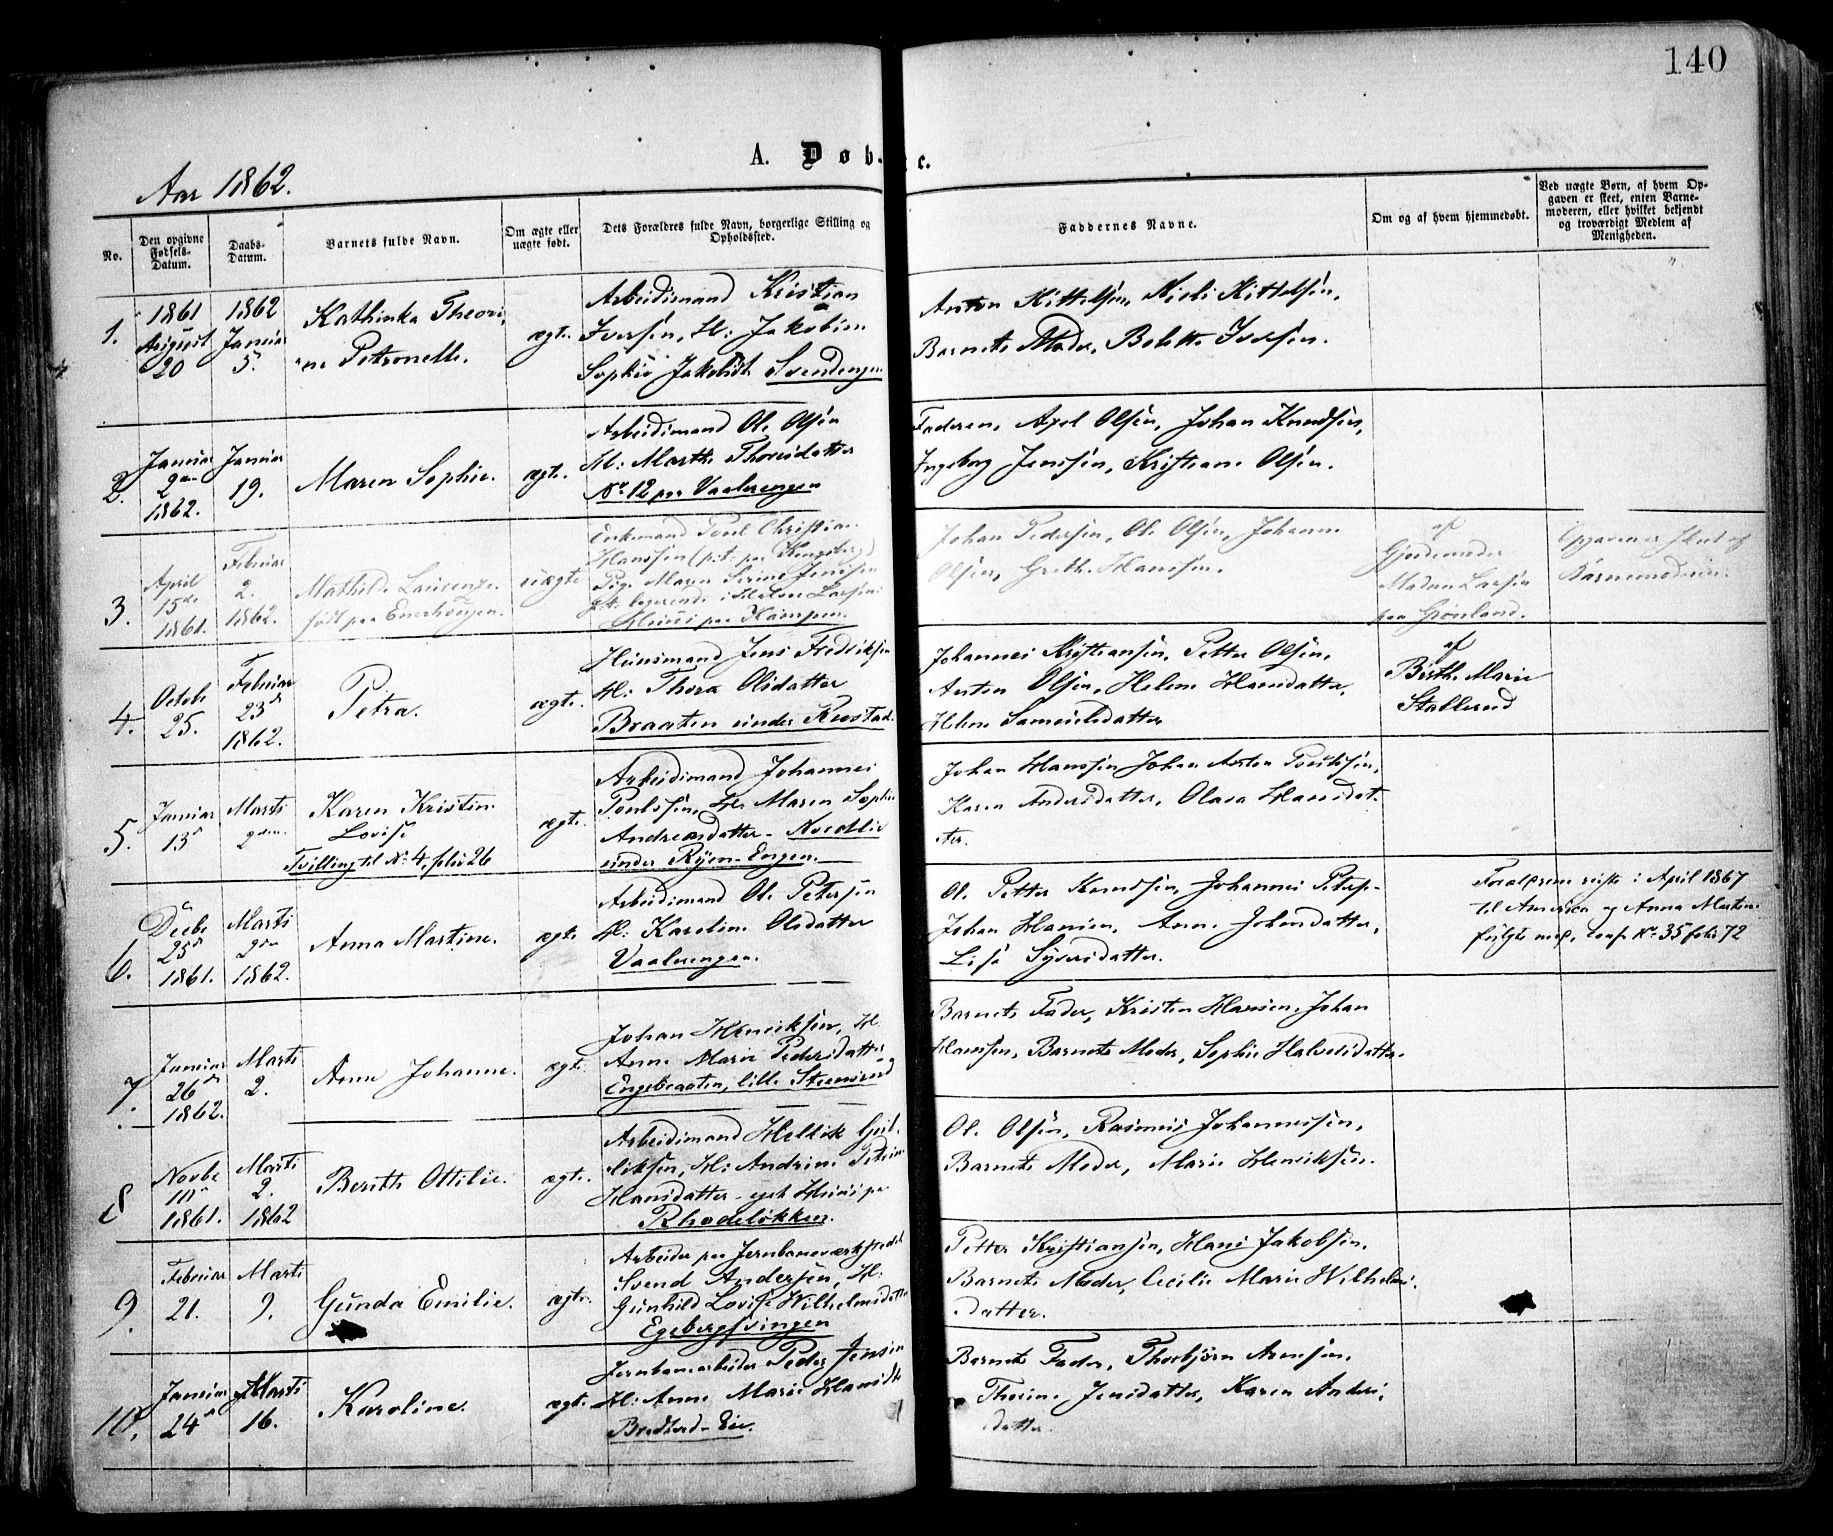 140
A. Døb- e.
Aar 1862.
No.
Den opgivne Fødsels-Datum.
Daabs-Datum.
Barnets fulde Navn.
Om ægte eller uægte født.
Dets Forældres fulde Navn, borgerlige Stilling og Opholdssted.
Faddernes Navne.
Om og af hvem hjemmedøbt.
Ved uægte Børn, af hvem Opgaven er skeet, enten Barnemoderen, eller hvilket bekjendt og troværdigt Medlem af Menigheden.
1.
1861
August
20
1862
Januar
5.
Kathinka Theori,
"ne Petronelle.
ægte.
Arbeidsmand Kristian
Iversen, H: Jakobine
Sophie Jakobsdt. Svendengen
Anton Kittelsen, Nicoli Kittelsen,
Barnets Moder, Bolette Iversen.
2.
Januar
2den
1862.
Januar
19.
Maren Sophie.
ægte.
Arbeidsmand Ole Olsen
H: Marthe Thoresdatter
No 12 paa Vaalerengen
Faderen, Axel Olsen, Johan Knudsen,
Ingeborg Jensen, Kristiane Olsen.
3.
April
15de
1861.
Februar
2.
1862.
Mathilde Laurenze
født paa Enerhougen.
uægte
Enkemand Poul Christian
Hanssen (p.t. paa Kongsberg)
Pige Maren Serine Jenssen
p.t. logerende i Larsens
Huus paa Kampen.
Johan Pedersen, Ole Olsen, Johanne
Olsen, Grethe Hanssen.
af
Gjordemoder
Madam Larsen
paa Grønland.
Opgaven er skeet af
Barnemoderen.
4.
Octobr
25.
Februar
23de
1862.
Petra.
ægte.
Huusmand Jens Fredriksen
H: Thora Olsdatter
Braaten under Rustad.
Johannes Kristiansen, Petter Olsen,
Anton Olsen, Helene Hansdatter,
Helene Samuelsdatter
af
Birthe Marie
Stallerud
5.
Januar
13de
Marts
2den.
Karen Kristine
Lovise
Tvilling til No 4 folio 26
ægte.
Arbeidsmand Johannes
Poulssen, H: Maren Sophie
Andreasdatter - Nordlie
under Ryen-Engen.
Johan Hanssen, Johan Anton Poulssen,
Karen Andersdatter, Olava Hansdat-
ter.
6.
Decbr
25de
1861.
Marts
2den
1862.
Anna Martine.
ægte.
Arbeidsmand Ole Petersen
H: Karoline Olsdatter
Vaalerengen.
Ole Petter Knudsen, Johannes Peters-
Johan Hansen, Anne Johansdatter,
Lise Syversdatter.
Forældrene reiste i April 1867
til America og Anna Martine
fulgte med, conf. No 35 folio 72
7.
Januar
26de
1862.
Marts
2.
Anne Johanne.
ægte.
Johan Henriksen, H:
Anne Marie Pedersdatter
Engebraaten, lille Steensrud
Barnets Fader, Kristen Hansen, Johan
Hanssen, Barnets Moder, Sophie Halvorsdatter.
8
Novbr
10de
1861.
Marts
2.
1862
Berith Ottilie.
ægte.
Arbeidsmand Hellik Gul-
liksen, H: Andrine Petrine
Hansdatter - eget Huus paa
Rhodeløkken.
Ole Olsen, Rasmus Johannessen,
Barnets Moder, Marie Henriksen.
9.
Februar
21.
Marts
9.
Gunda Emilie.
ægte.
Arbeider paa Jernbaneværkstedet
Svend Andersen, H:
Gunhild Lovise Wilhelmsdatter
Egebergsvingen
Petter Kristiansen, Hans Jakobsen,
Barnets Moder, Cecilie Marie Wilhelms-
datter.
10.
Januar
24de
Marts
16.
Karoline.
ægte.
Jernbanearbeider Peder Jensen
H: Anne Marie Hansdt
Barnets Fader, Thorbjørn Arnesen,
Thorine Jensdatter, Karen Anders-
datter.